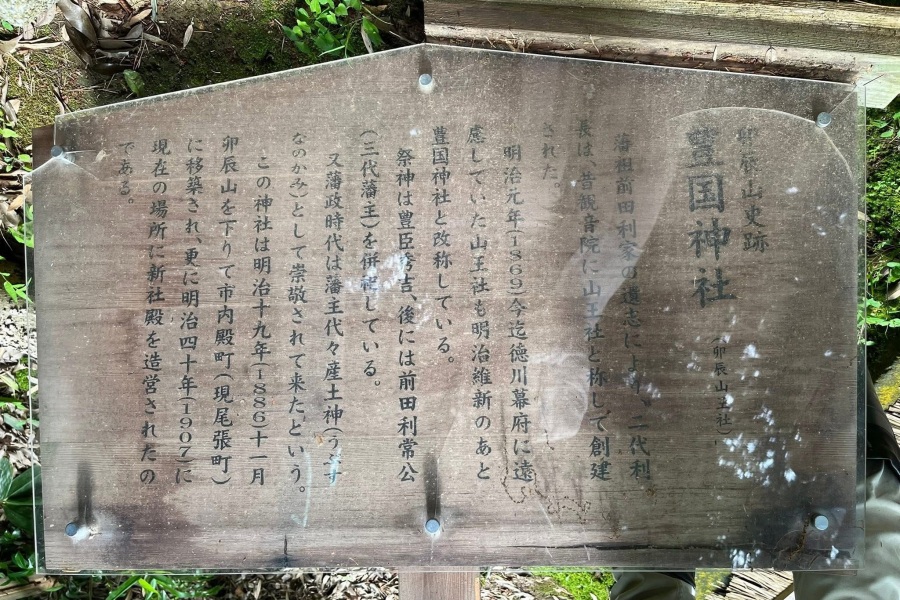 卯辰山史跡
豊国神社
(卯辰山山王社)
藩祖前田利家の遺志により、二代利
長は、昔観音院に山王社と称して創建
された。
明治元年(1869)今迄徳川幕府に遠
慮していた山王社も明治維新のあと
豊国神社と改称している。
祭神は豊臣秀吉、後には前田利常公
(三代藩主)を併祀している。
又藩政時代は藩主代々産土神(うぶす
なのかみ)として崇敬されて来たという。
この神社は明治十九年(1886)十一月
卯辰山を下りて市内殿町(現尾張町)
に移築され、更に明治四十年(1907)に
現在の場所に新社殿を造営されたの
である。